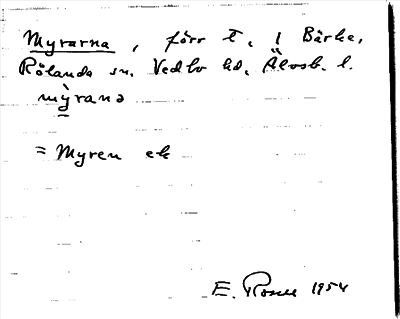 Myrarna, förr t. 1 Bärke,
Rölanda sn. Vedbo hd. Älvsb. l.
mỳrana
= Myren ek
E. Rosell 1954